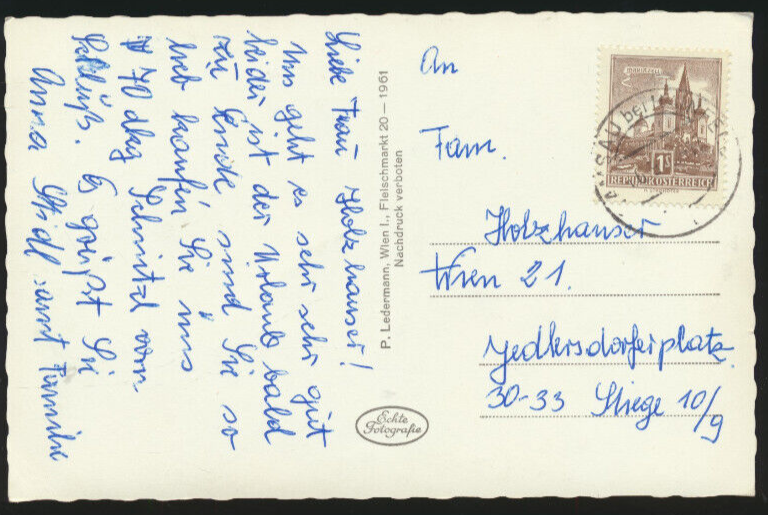 Liebe Frau Holzhauser!
Uns geht es sehr sehr gut
leider ist der Urlaub bald
zu Ende sind Sie so
lieb kaufen Sie uns
70 dkg Schnitzel vom
Schluß. Es grüßt Sie
Anna Stidl samt Familie
P. Ledermann, Wien I., Fleischmarkt 20 – 1961
Nachdruck verboten
Echte
Fotografie
An
Fam.
Holzhauser
Wien 21.
Jedlersdorferplatz
30-33 Stiege 10/9
MARIAZELL
1S
REPUBLIK ÖSTERREICH
AU bei